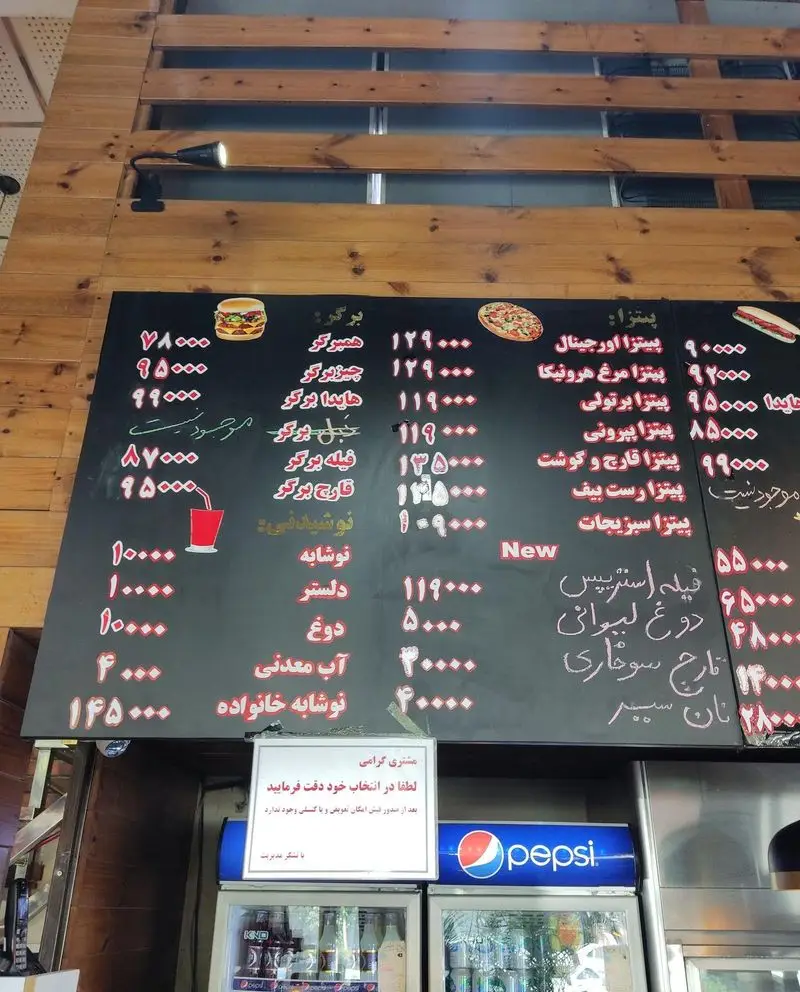 ۹۰۰۰۰
۹۲۰۰۰
هایدا ۹۵۰۰۰
۸۵۰۰۰
۹۹۰۰۰
موجود نیست
۵۵۰۰۰
۶۵۰۰۰
۴۸۰۰۰
۱۴۰۰۰
۲۸۰۰۰
پیتزا:
پیتزا اورجینال ۱۲۹۰۰۰
پیتزا مرغ هرونیکا ۱۲۹۰۰۰
پیتزا برتولی ۱۱۹۰۰۰
پیتزا پپرونی ۱۱۹۰۰۰
پیتزا قارچ و گوشت ۱۳۵۰۰۰
پیتزا رست بیف
پیتزا سبزیجات ۱۰۹۰۰۰
New
فیله استریپس ۱۱۹۰۰۰
دوغ لیوانی ۵۰۰۰
قارچ سوخاری ۳۰۰۰۰
نان سیر ۴۰۰۰۰
برگر:
همبرگر ۷۸۰۰۰
چیزبرگر ۹۵۰۰۰
هایدا برگر ۹۹۰۰۰
دبل برگر موجود نیست
فیله برگر ۸۷۰۰۰
قارچ برگر ۹۵۰۰۰
نوشیدنی:
نوشابه ۱۰۰۰۰
دلستر ۱۰۰۰۰
دوغ ۱۰۰۰۰
آب معدنی ۴۰۰۰
نوشابه خانواده ۱۴۵۰۰۰
مشتری گرامی
لطفا در انتخاب خود دقت فرمایید
بعد از صدور فیش امکان تعویض و یا کنسلی وجود ندارد
با تشکر مدیریت
pepsi
KND